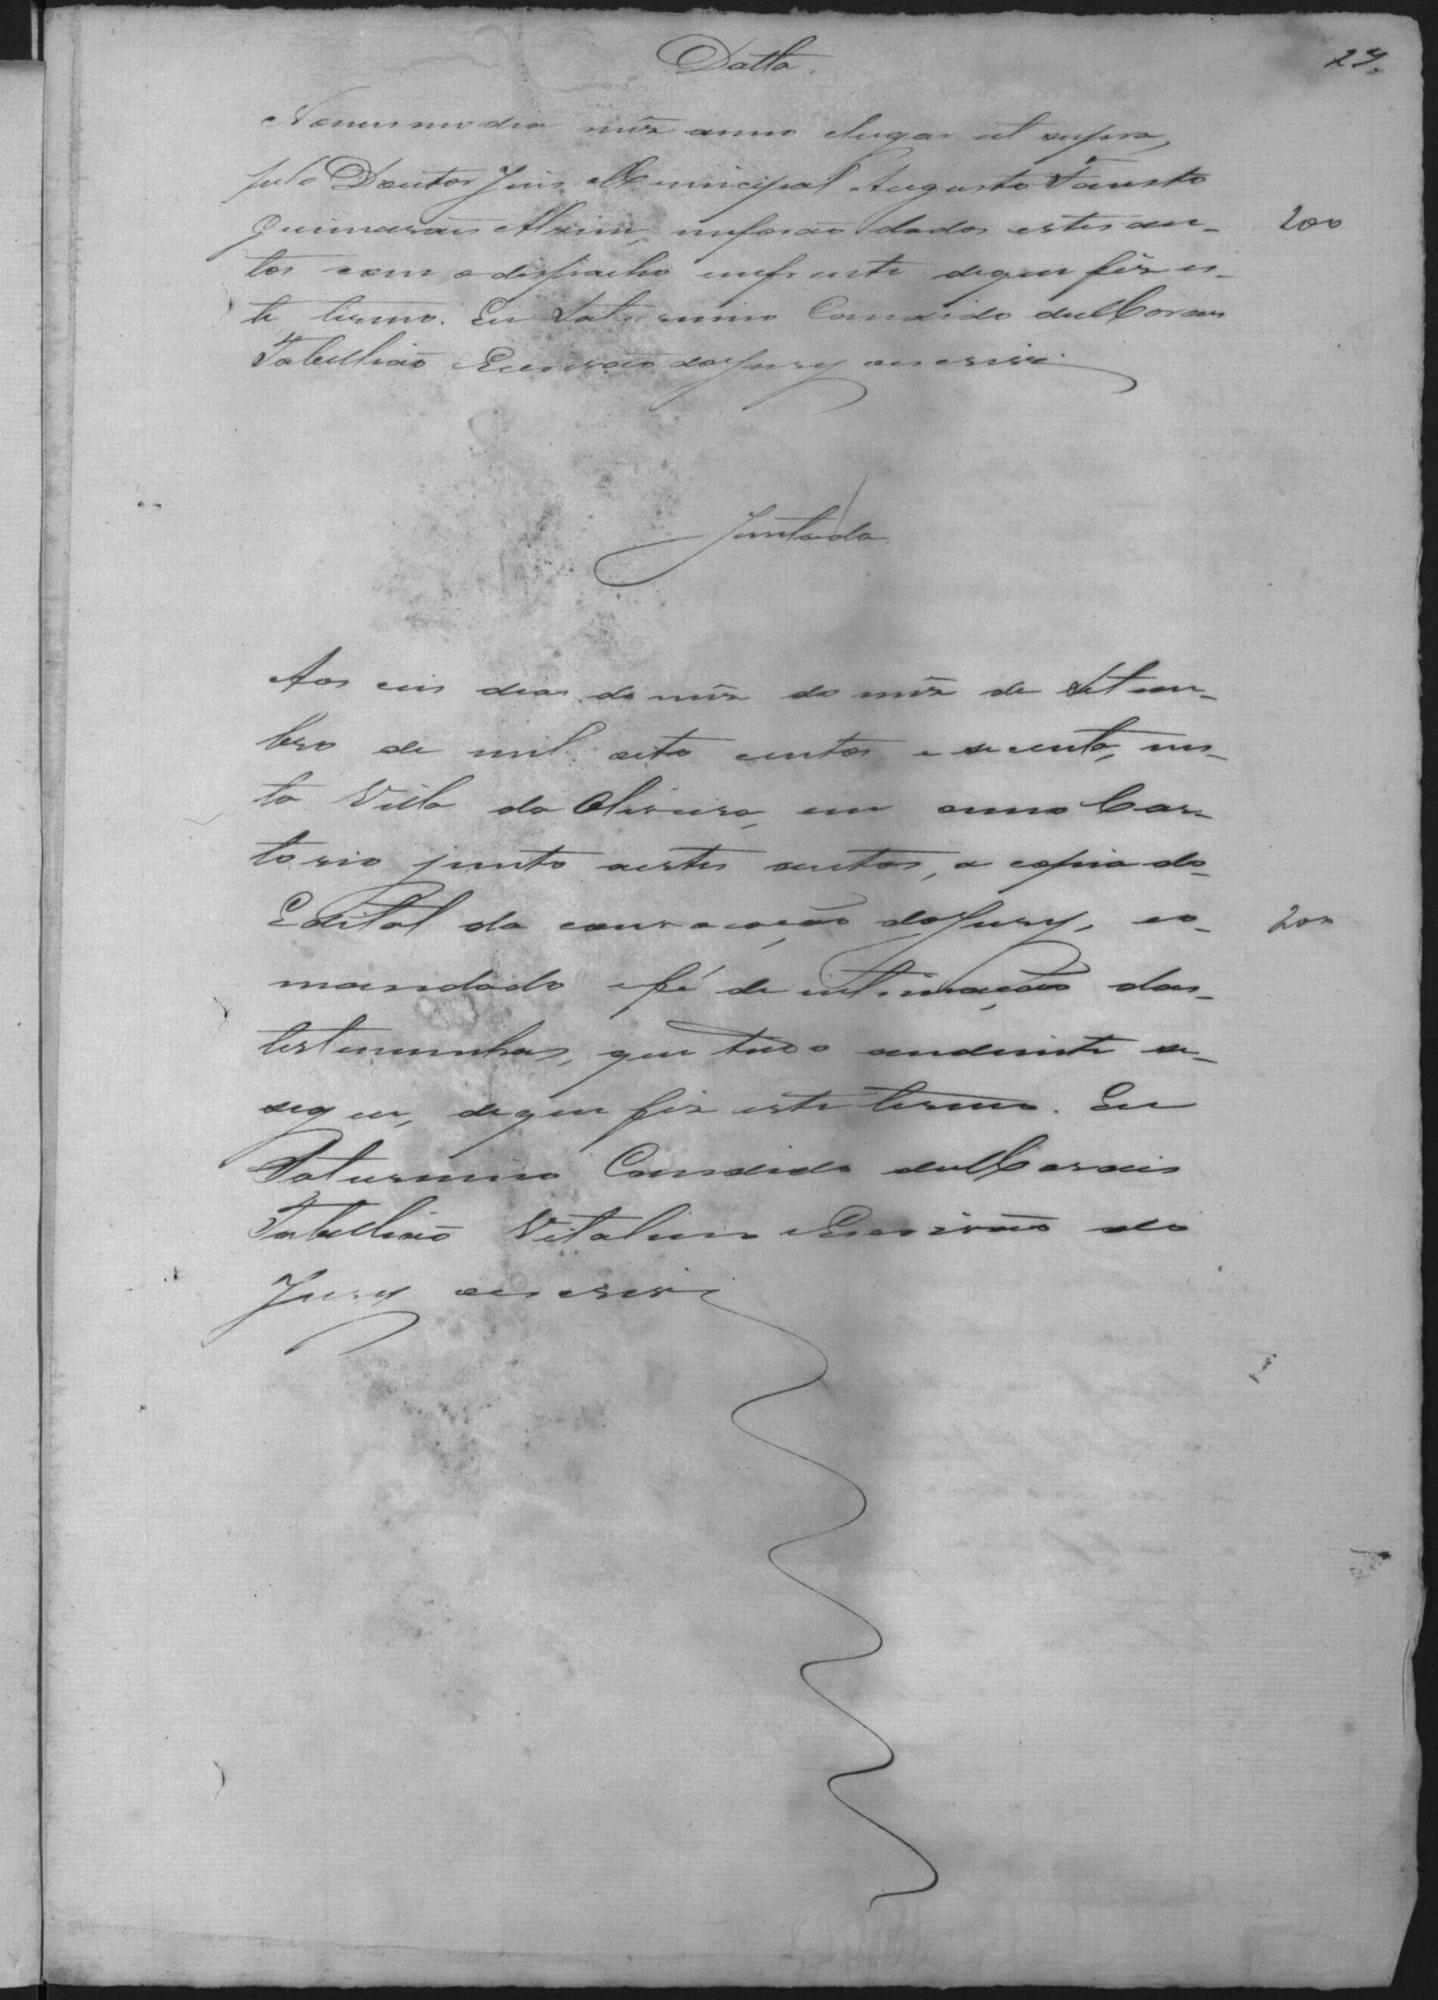 Datta.
27.
No mesmo dia mez anno e lugar ut supra,
pelo Doutor Juis Municipal Augusto Fausto
Guimarães Alvim, me forão dados estes au-
200
tos com o despacho em frente de que fiz es-
te termo. Eu Saturnino Candido de Moraes
Tabellião Escrivão do Jury o escrevi
Juntada
Aos seis dias do mez do mez de Setem-
bro de mil oito centos e secenta, nes-
ta Villa da Oliveira, em meo Car-
torio junto a estes autos, a copia do
Edital da convocação do Jury, eo
200
mandado e fé de intimação das
testemunhas, que tudo ao diante se
segue, de que fiz este termo. Eu
Saturnino Candido de Moraes
Tabellião Vitalicio e Escrivão do
Jury o escrevi